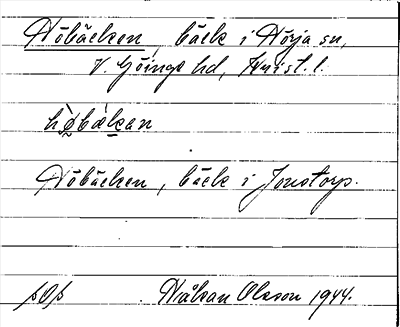 Höbäcken, bäck i Hörja sn,
V. Göinge hd, Krist. l.
Höbäcken, bäck i Jonstorp.
Håkan Olsson 1944.